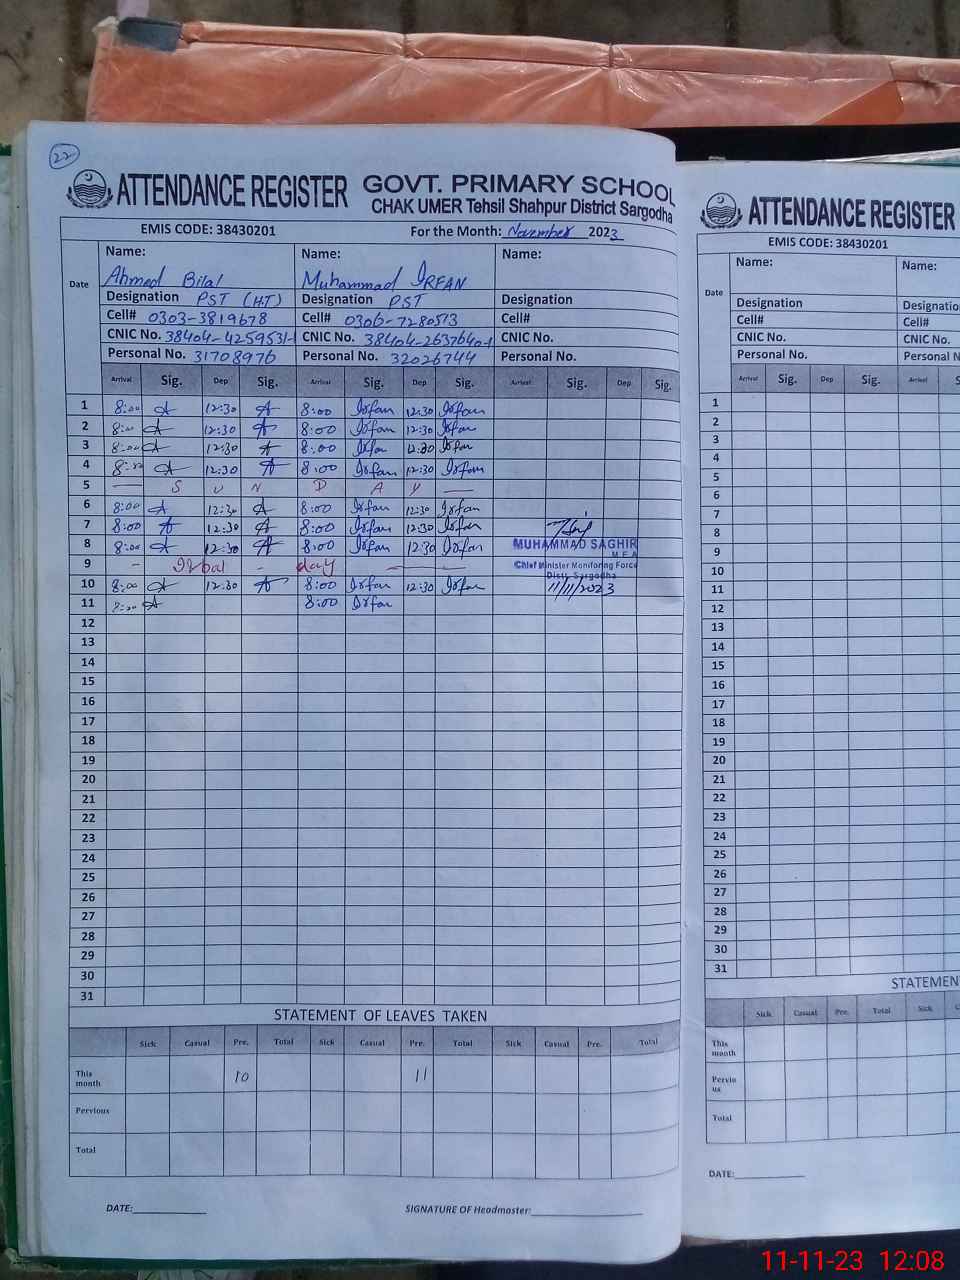 22
ATTENDANCE REGISTER GOVT. PRIMARY SCHOOL
CHAK UMER Tehsil Shahpur District Sargodha
EMIS CODE: 38430201 For the Month: November 2023
Date Name: Ahmed Bilal Name: Muhammad IRFAN Name:
Designation PST (H.T) Designation PST Designation
Cell# 0303-3819678 Cell# 0306-7280513 Cell#
CNIC No. 38404-4259531-1 CNIC No. 38404-2637640-1 CNIC No.
Personal No. 31708976 Personal No. 32026744 Personal No.
Arrival Sig. Dep Sig. Arrival Sig. Dep Sig. Arrival Sig. Dep Sig.
1 8:00 A 12:30 A 8:00 Irfan 12:30 Irfan
2 8:00 A 12:30 A 8:00 Irfan 12:30 Irfan
3 8:00 A 12:30 A 8:00 Irfan 12:30 Irfan
4 8:00 A 12:30 A 8:00 Irfan 12:30 Irfan
5 — S U N D A Y —
6 8:00 A 12:30 A 8:00 Irfan 12:30 Irfan
7 8:00 A 12:30 A 8:00 Irfan 12:30 Irfan
8 8:00 A 12:30 A 8:00 Irfan 12:30 Irfan
MUHAMMAD SAGHIR
M E A
9 - Iqbal - day —
Chief Minister Monitoring Force
Distt: Sargodha
10 8:00 A 12:30 A 8:00 Irfan 12:30 Irfan
11/11/2023
11 8:00 A 8:00 Irfan
12
13
14
15
16
17
18
19
20
21
22
23
24
25
26
27
28
29
30
31
STATEMENT OF LEAVES TAKEN
Sick Casual Pre. Total Sick Casual Pre. Total Sick Casual Pre. Total
This month 10 11
Pervious
Total
DATE: SIGNATURE OF Headmaster:
ATTENDANCE REGISTER
EMIS CODE: 38430201
Date Name: Name:
Designation Designatio
Cell# Cell#
CNIC No. CNIC No.
Personal No. Personal N
Arrival Sig. Dep Sig. Arrival S
1
2
3
4
5
6
7
8
9
10
11
12
13
14
15
16
17
18
19
20
21
22
23
24
25
26
27
28
29
30
31
STATEMEN
Sick Casual Pre. Total Sick C
This month
Pervio us
Total
DATE:
11-11-23 12:08